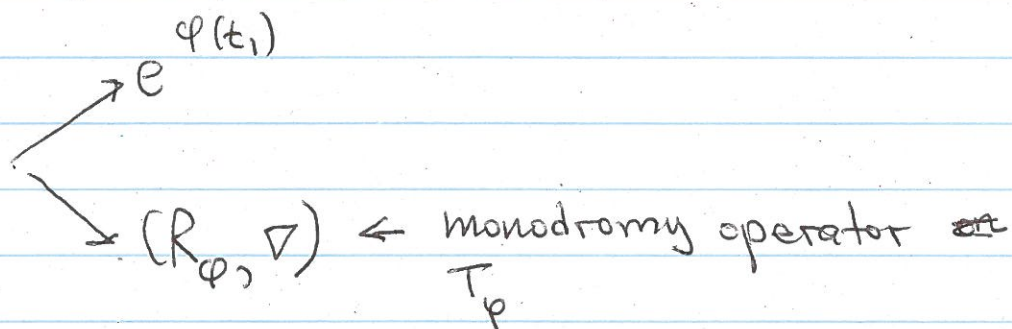 e^{φ(t_1)}
(R_φ, ∇) ← monodromy operator
T_φ